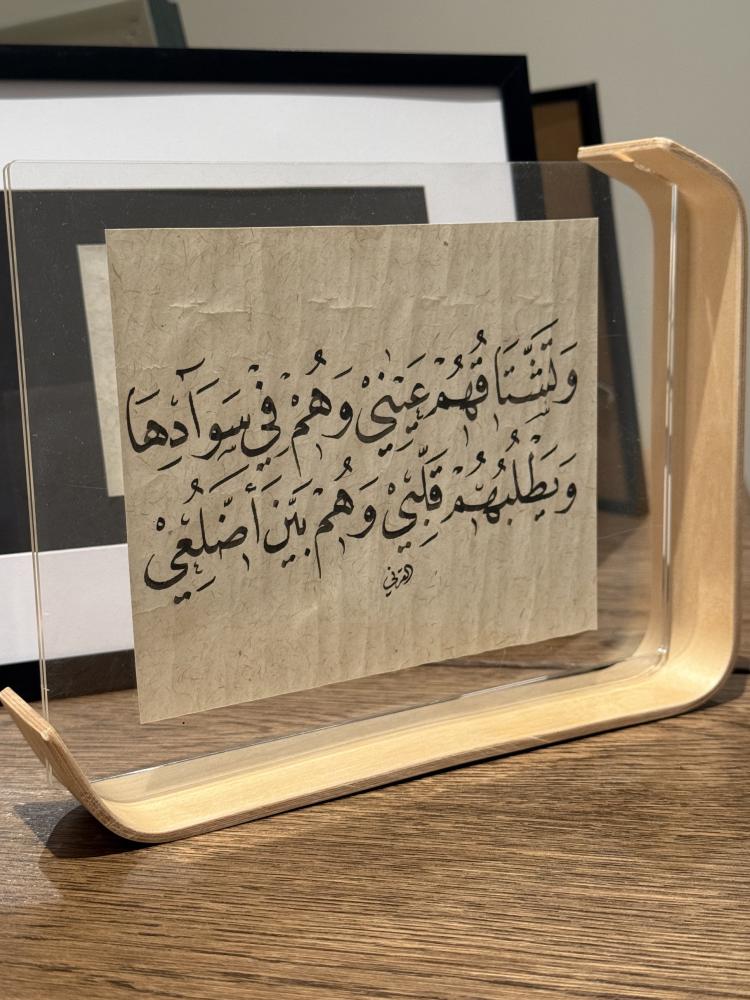 وَتَشْتَاقُهُمْ عَيْنِيْ وَهُمْ فِيْ سَوَآدِهَا
وَيَطْلُبُهُمْ قَلْبِيْ وَهُمْ بَيْنَ أَضْلُعِيْ